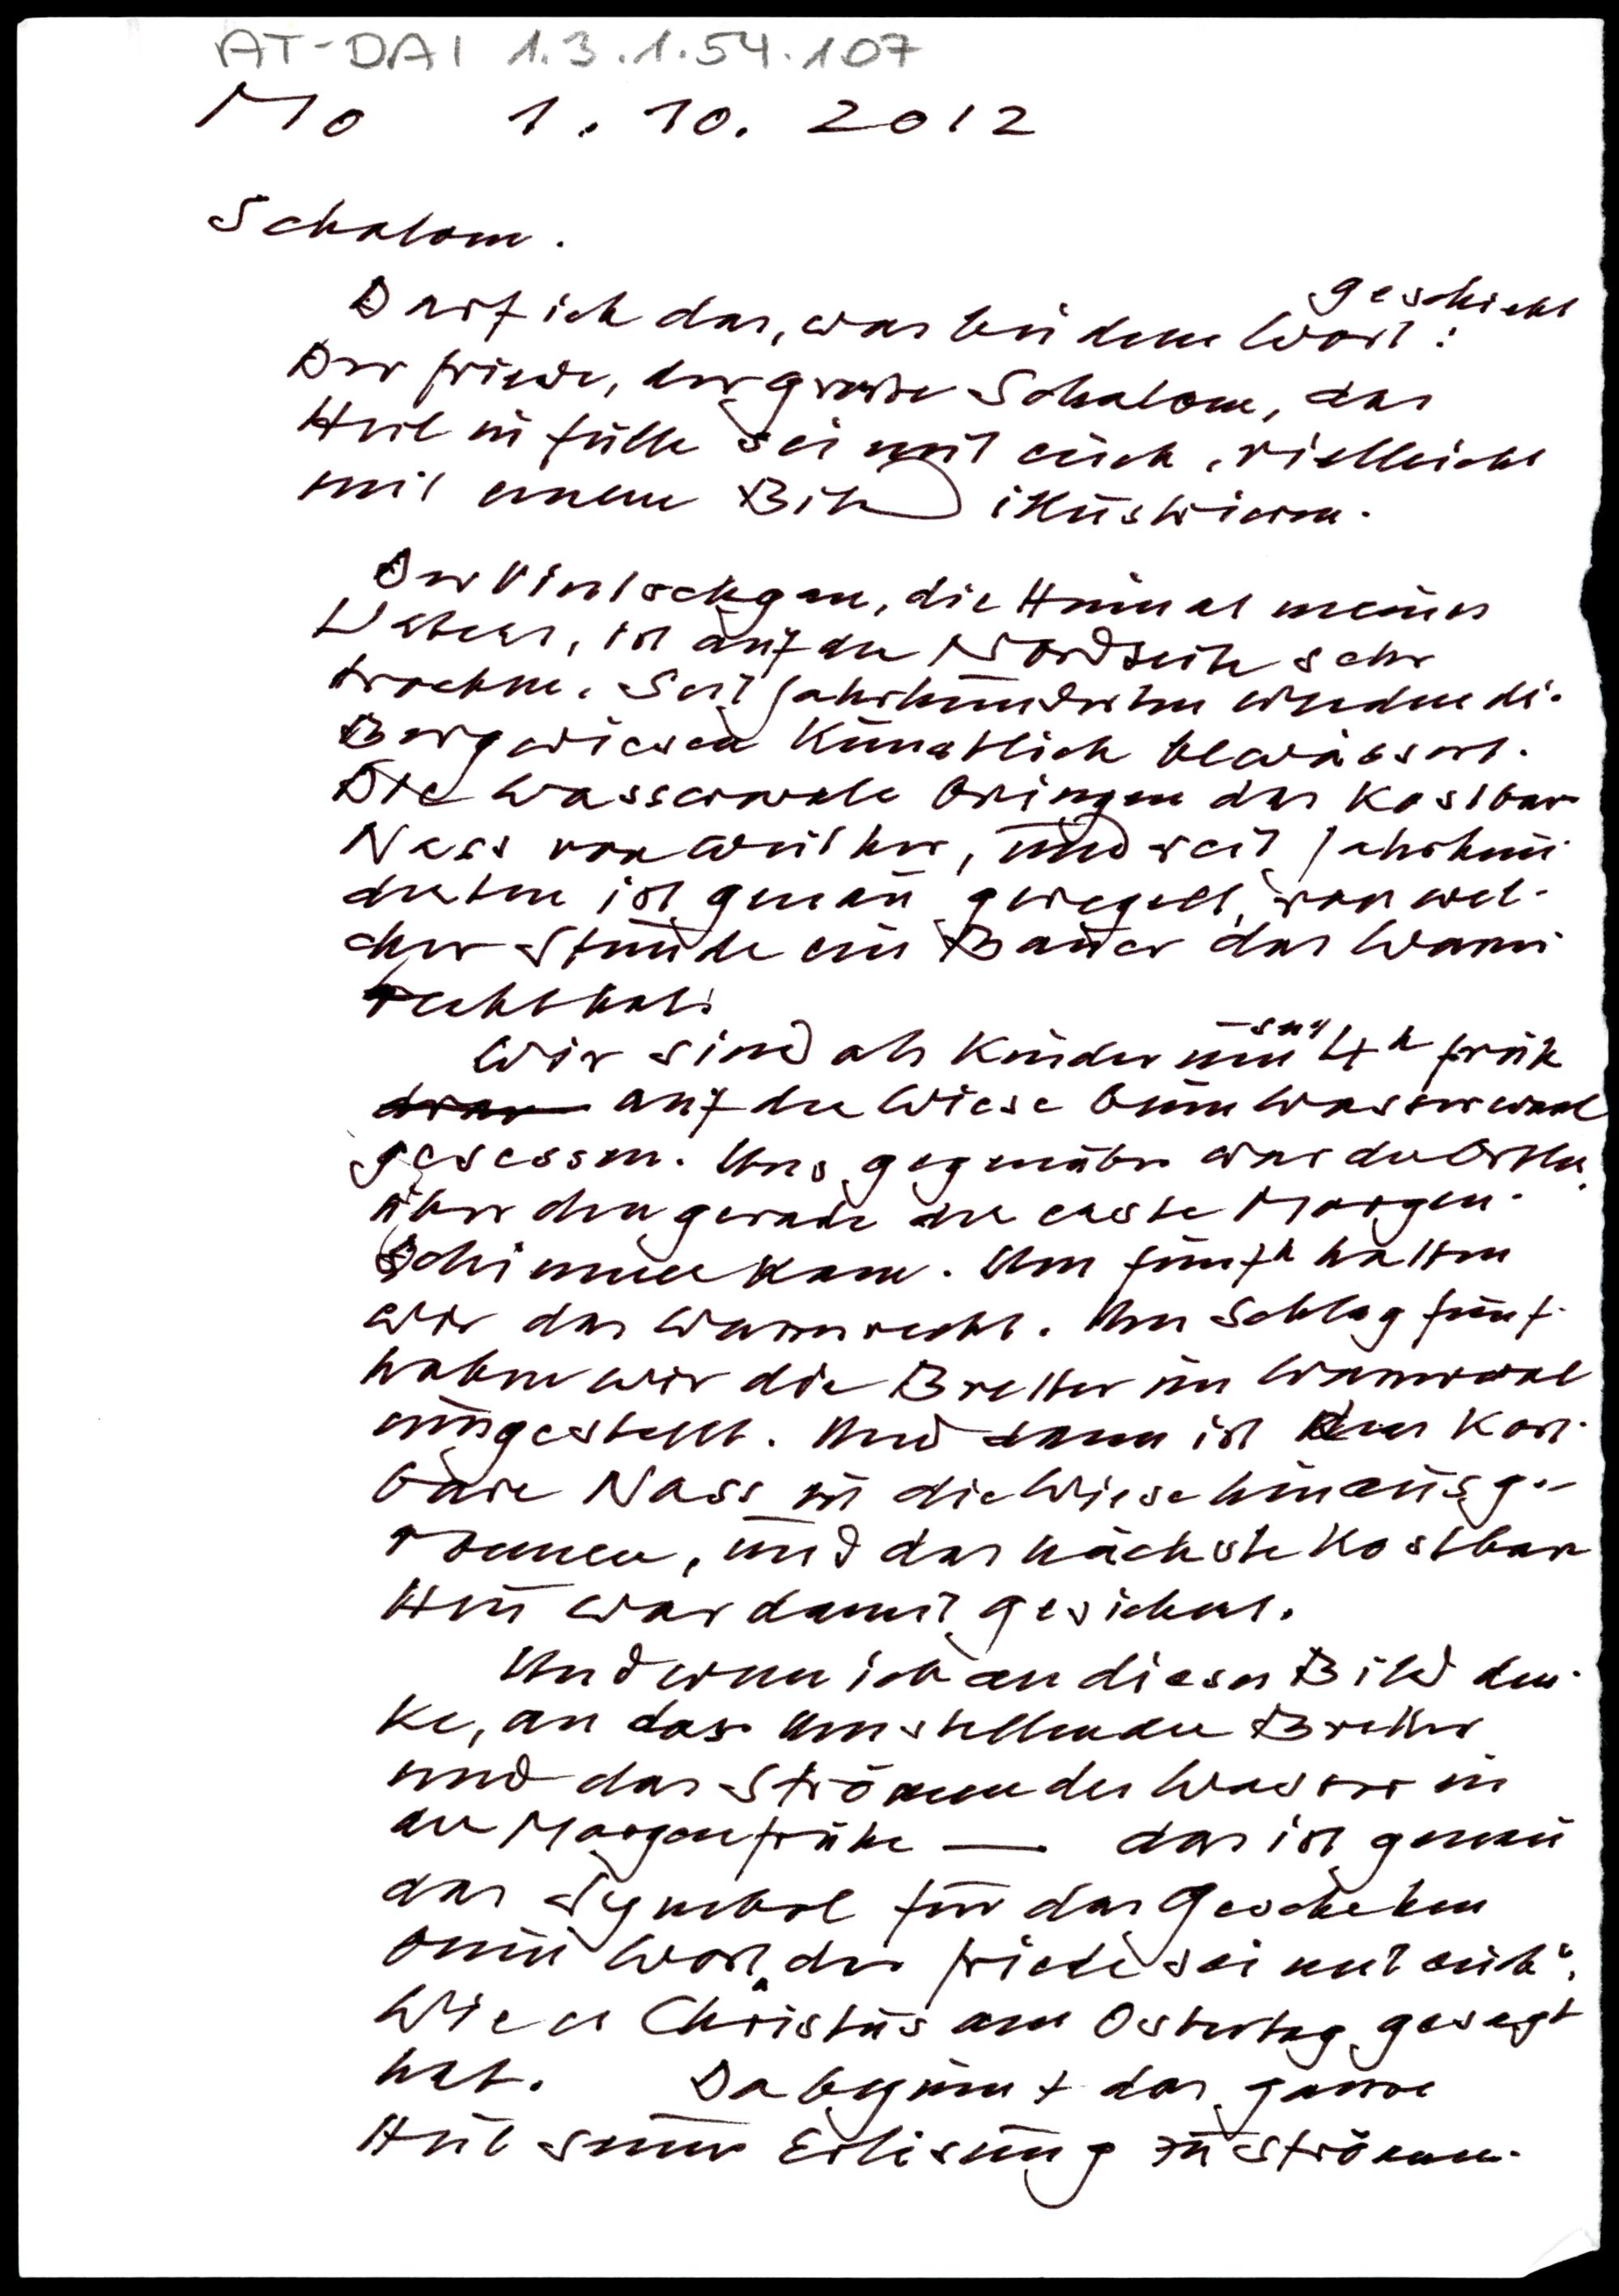 AT-DAI 1.3.1.54.107
Mo 1.10.2012
Schalom.
geschieht
Darf ich das, was bei dem Wort:
Der Friede, der große Schalom, das
Heil in Fülle sei mit euch, vielleicht
mit einem Bild illustrieren.
Der Vintschgau, die Heimat meines
Vaters, ist auf der Nordseite sehr
trocken. Seit Jahrhunderten werden die
Bergwiesen künstlich bewässert.
Die Wasserwale bringen das kostbare
Nass von weit her, und seit Jahrhun-
derten ist genau geregelt, von wel-
cher Stunde ein Bauer das Wasser-
recht hat.
Wir sind als Kinder um 4h früh
auf der Wiese beim Wasserwaal
gesessen. Uns gegenüber war der Ortler,
über den gerade der erste Morgen-
schimmer kam. Um fünf h hatten
wir das Wasserrecht. Um Schlag fünf
haben wir die Bretter im Wasserwaal
umgestellt. Und dann ist das kost-
bare Nass in die Wiese hinausge-
ronnen, und das nächste kostbare
Heu war damit gesichert.
Und wenn ich an dieses Bild den-
ke, an das Umstellen der Bretter
und das Strömen des Wassers in
der Morgenfrühe — das ist genau
das Symbol für das Geschehen
beim Wort „der Friede sei mit euch“,
wie es Christus am Ostertag gesagt
hat. Da beginnt das ganze
Heil seiner Erlösung zu strömen.